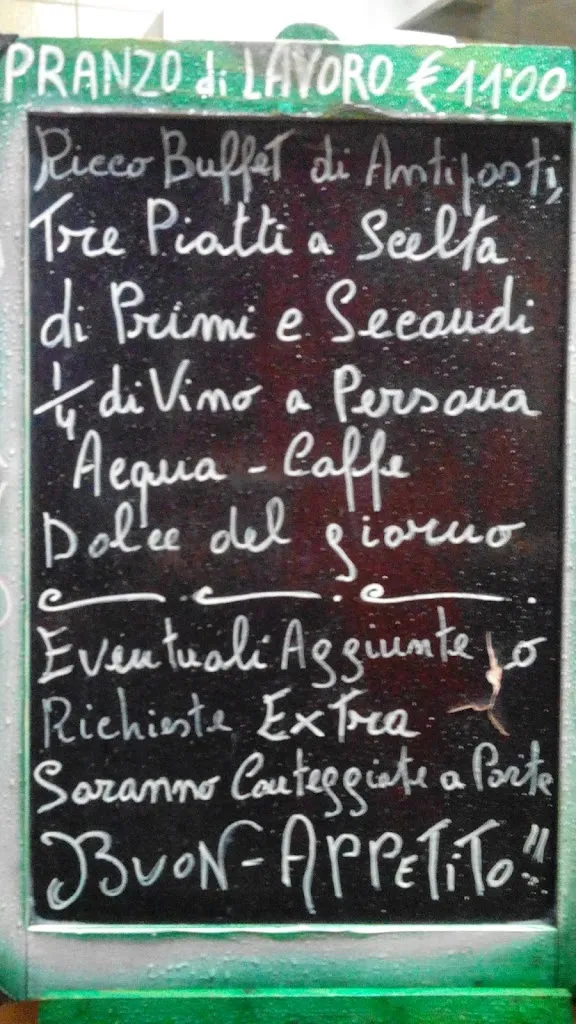 PRANZO di LAVORO € 11.00
Ricco Buffet di Antipasti,
Tre Piatti a Scelta
di Primi e Secondi
1/4 di Vino a Persona
Acqua - Caffe
Dolce del giorno
Eventuali Aggiunte o
Richieste Extra
Saranno Conteggiate a Parte
BUON-APPETITO!!